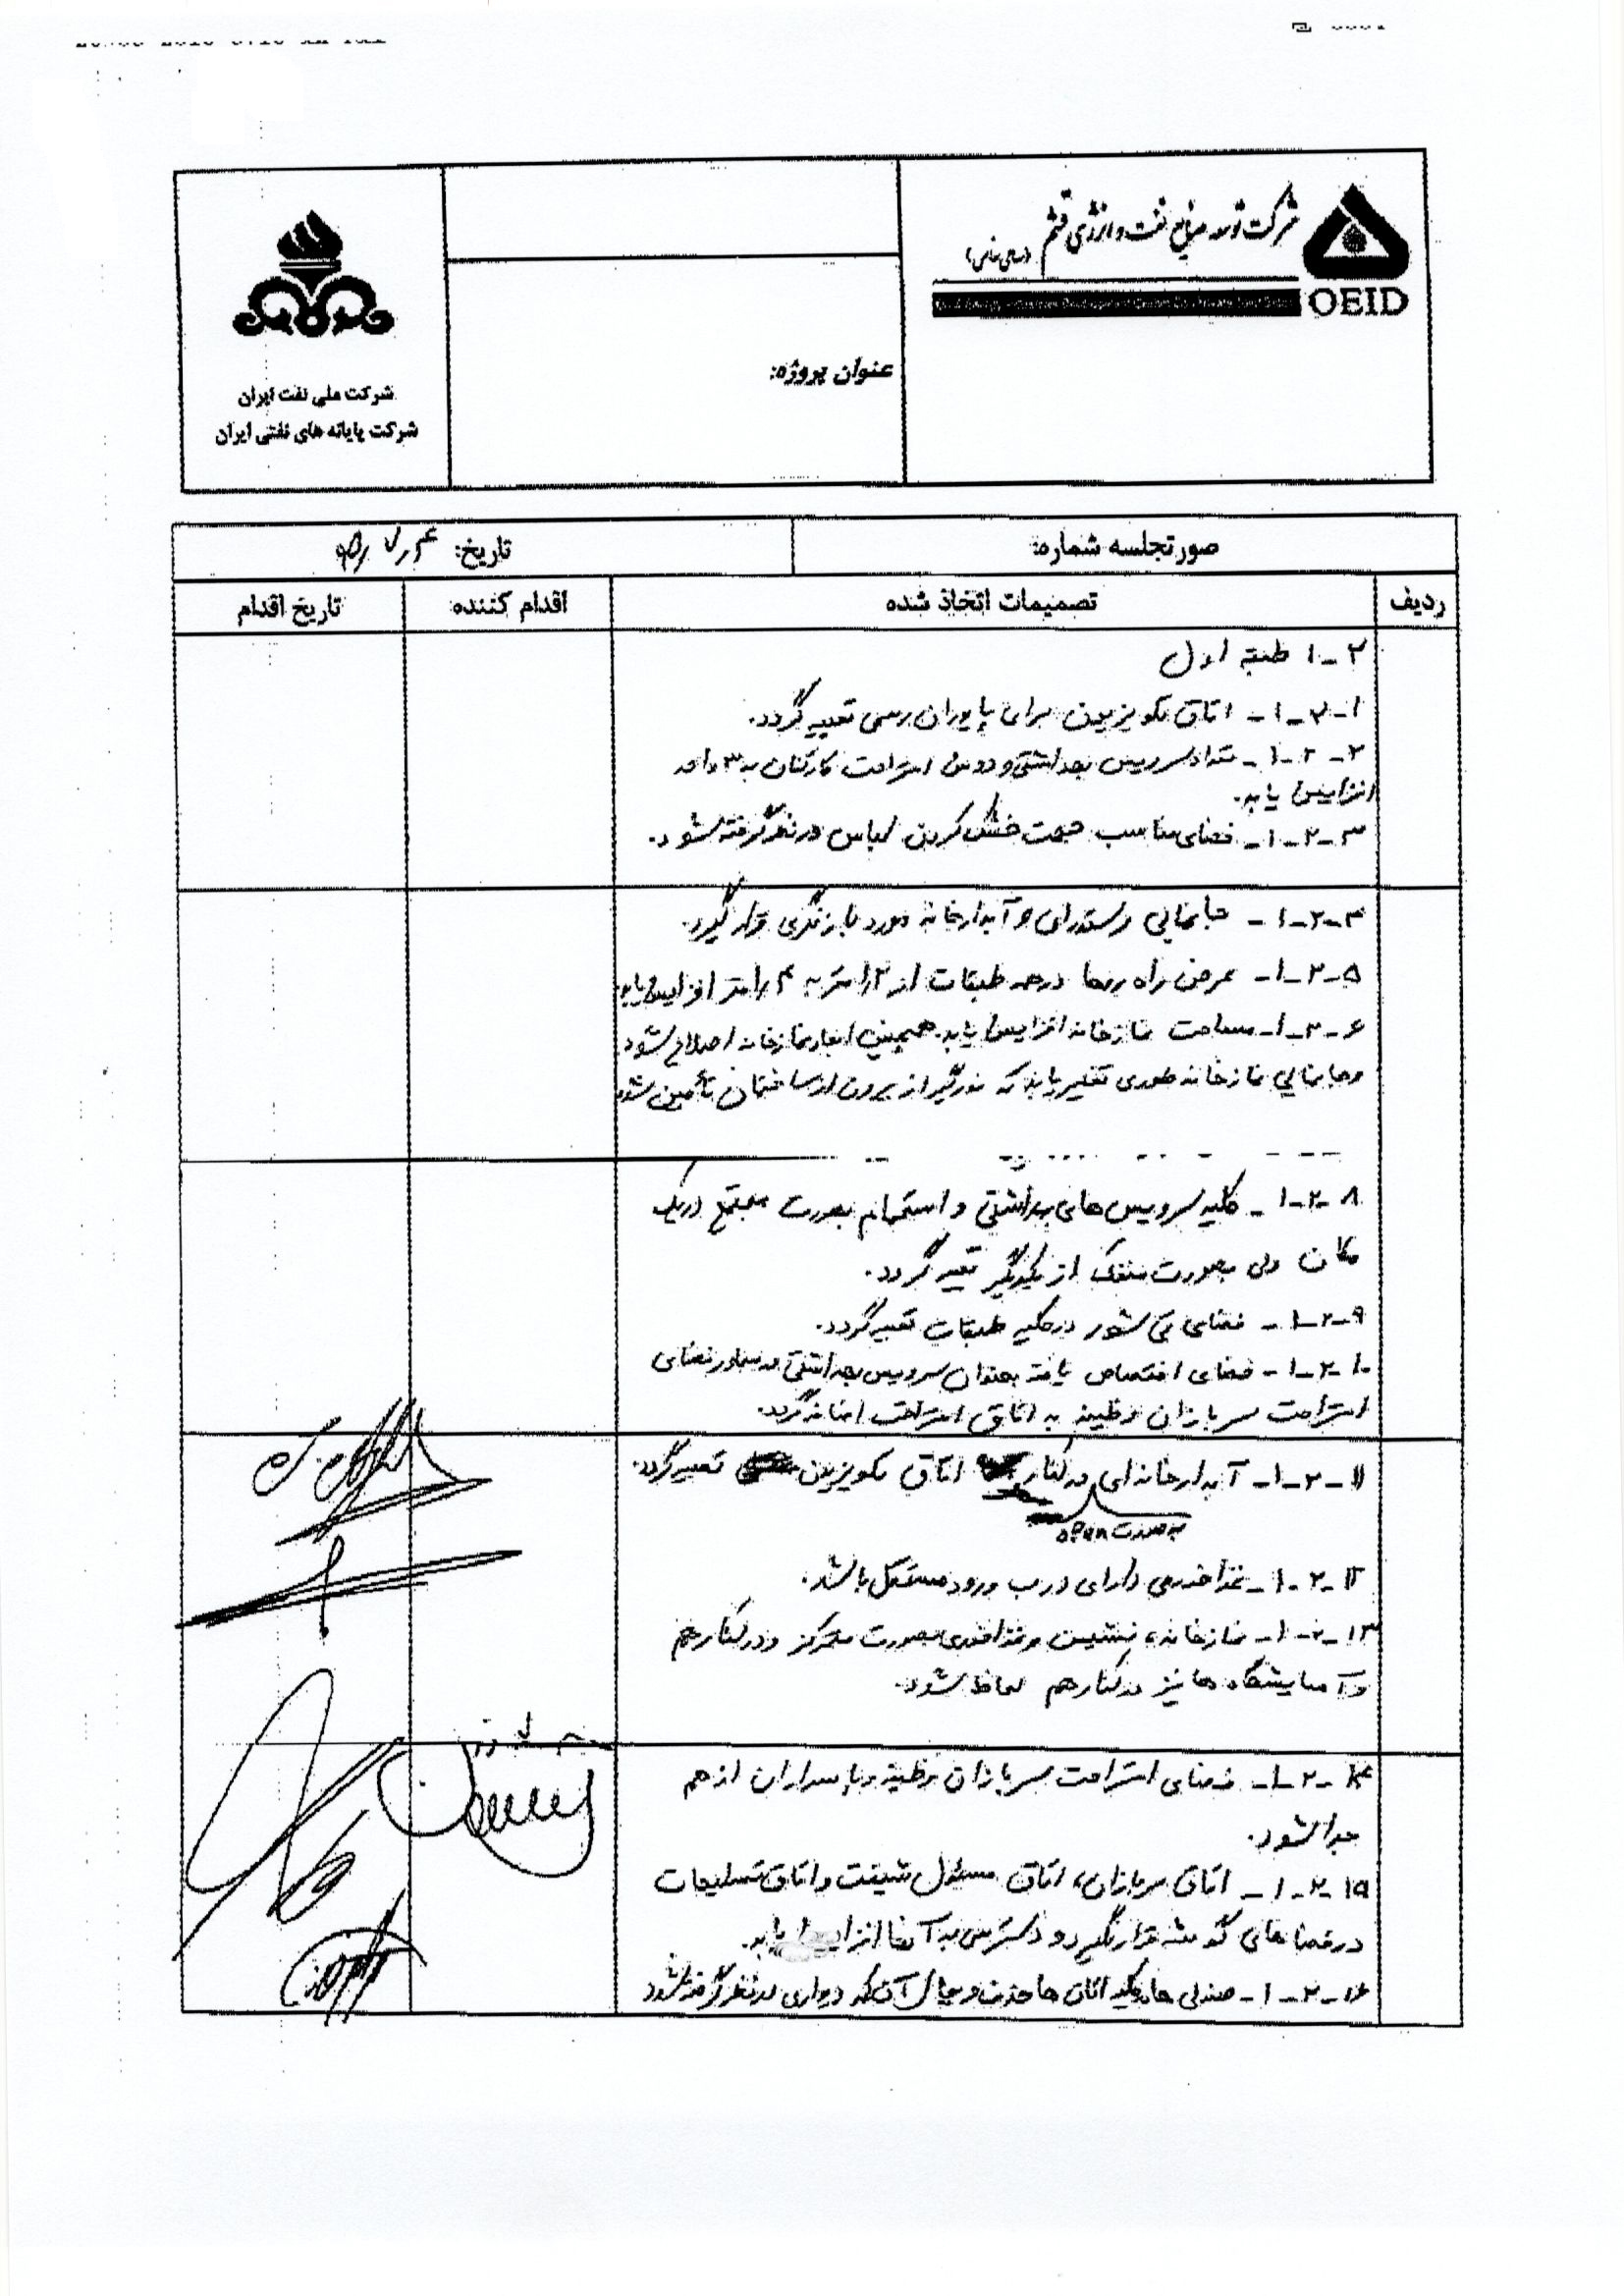 شرکت توسعه منابع نفت و انرژی قشم
(سهامی خاص)
OEID
عنوان پروژه:
شرکت ملی نفت ایران
شرکت پایانه های نفتی ایران
صورتجلسه شماره:
تاریخ:
ردیف تصمیمات اتخاذ شده اقدام کننده تاریخ اقدام
۱-۲ طبقه اول
۱-۲-۱- اتاق تلویزیون برای پاسداران رسمی تعبیه گردد.
۱-۲-۲- تعداد سرویس بهداشتی و دوش استراحت کارکنان به ۳ واحد
افزایش یابد.
۱-۲-۳- فضای مناسب جهت خشک کردن لباس در نظر گرفته شود.
۱-۲-۴- جانمایی رستوران و آبدارخانه مورد بازنگری قرار گیرد.
۱-۲-۵- عرض راه روها در همه طبقات از متر به متر افزایش یابد
۱-۲-۶- مساحت نمازخانه افزایش یابد. همچنین ابعاد نمازخانه اصلاح شود
و جانمایی نمازخانه طوری تغییر یابد که نورگیر از بیرون از ساختمان تأمین شود
۱-۲-۸- کلیه سرویس های بهداشتی و استحمام بصورت مجتمع در یک
مکان ولی بصورت منفک از یکدیگر تعبیه گردد.
۱-۲-۹- فضای تی شور در کلیه طبقات تعبیه گردد.
۱-۲-۱۰- فضای اختصاص یافته بعنوان سرویس بهداشتی در مجاور فضای
استراحت سربازان وظیفه به اتاق استراحت اضافه گردد.
۱-۲-۱۱- آبدارخانه‌ای در کنار اتاق تلویزیون تعبیه گردد.
به صورت open
۱-۲-۱۲- غذاخوری دارای درب ورود مستقل باشد.
۱-۲-۱۳- نمازخانه، نشیمن و غذاخوری بصورت متمرکز و در کنار هم
و آسایشگاه ها نیز در کنار هم لحاظ شود.
۱-۲-۱۴- فضای استراحت سربازان وظیفه و پاسداران از هم
جدا شود.
۱-۲-۱۵- اتاق سربازان، اتاق مسئول شیفت و اتاق تسلیحات
در فضاهای گوشه قرار نگیرد و دسترسی به آنها افزایش یابد.
۱-۲-۱۶- صندلی ها کلیه اتاق ها حذف و بجای آن کمد دیواری در نظر گرفته شود